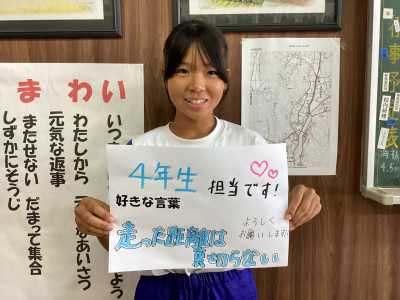 まわい
いつ
よう
わたしから
なあいさつ
元気な返事
またせない だまって集合
しずかにそうじ
4年生 担当です!
好きな言葉
よろしく
お願いします!
走った距離は
裏切らない
事予
表